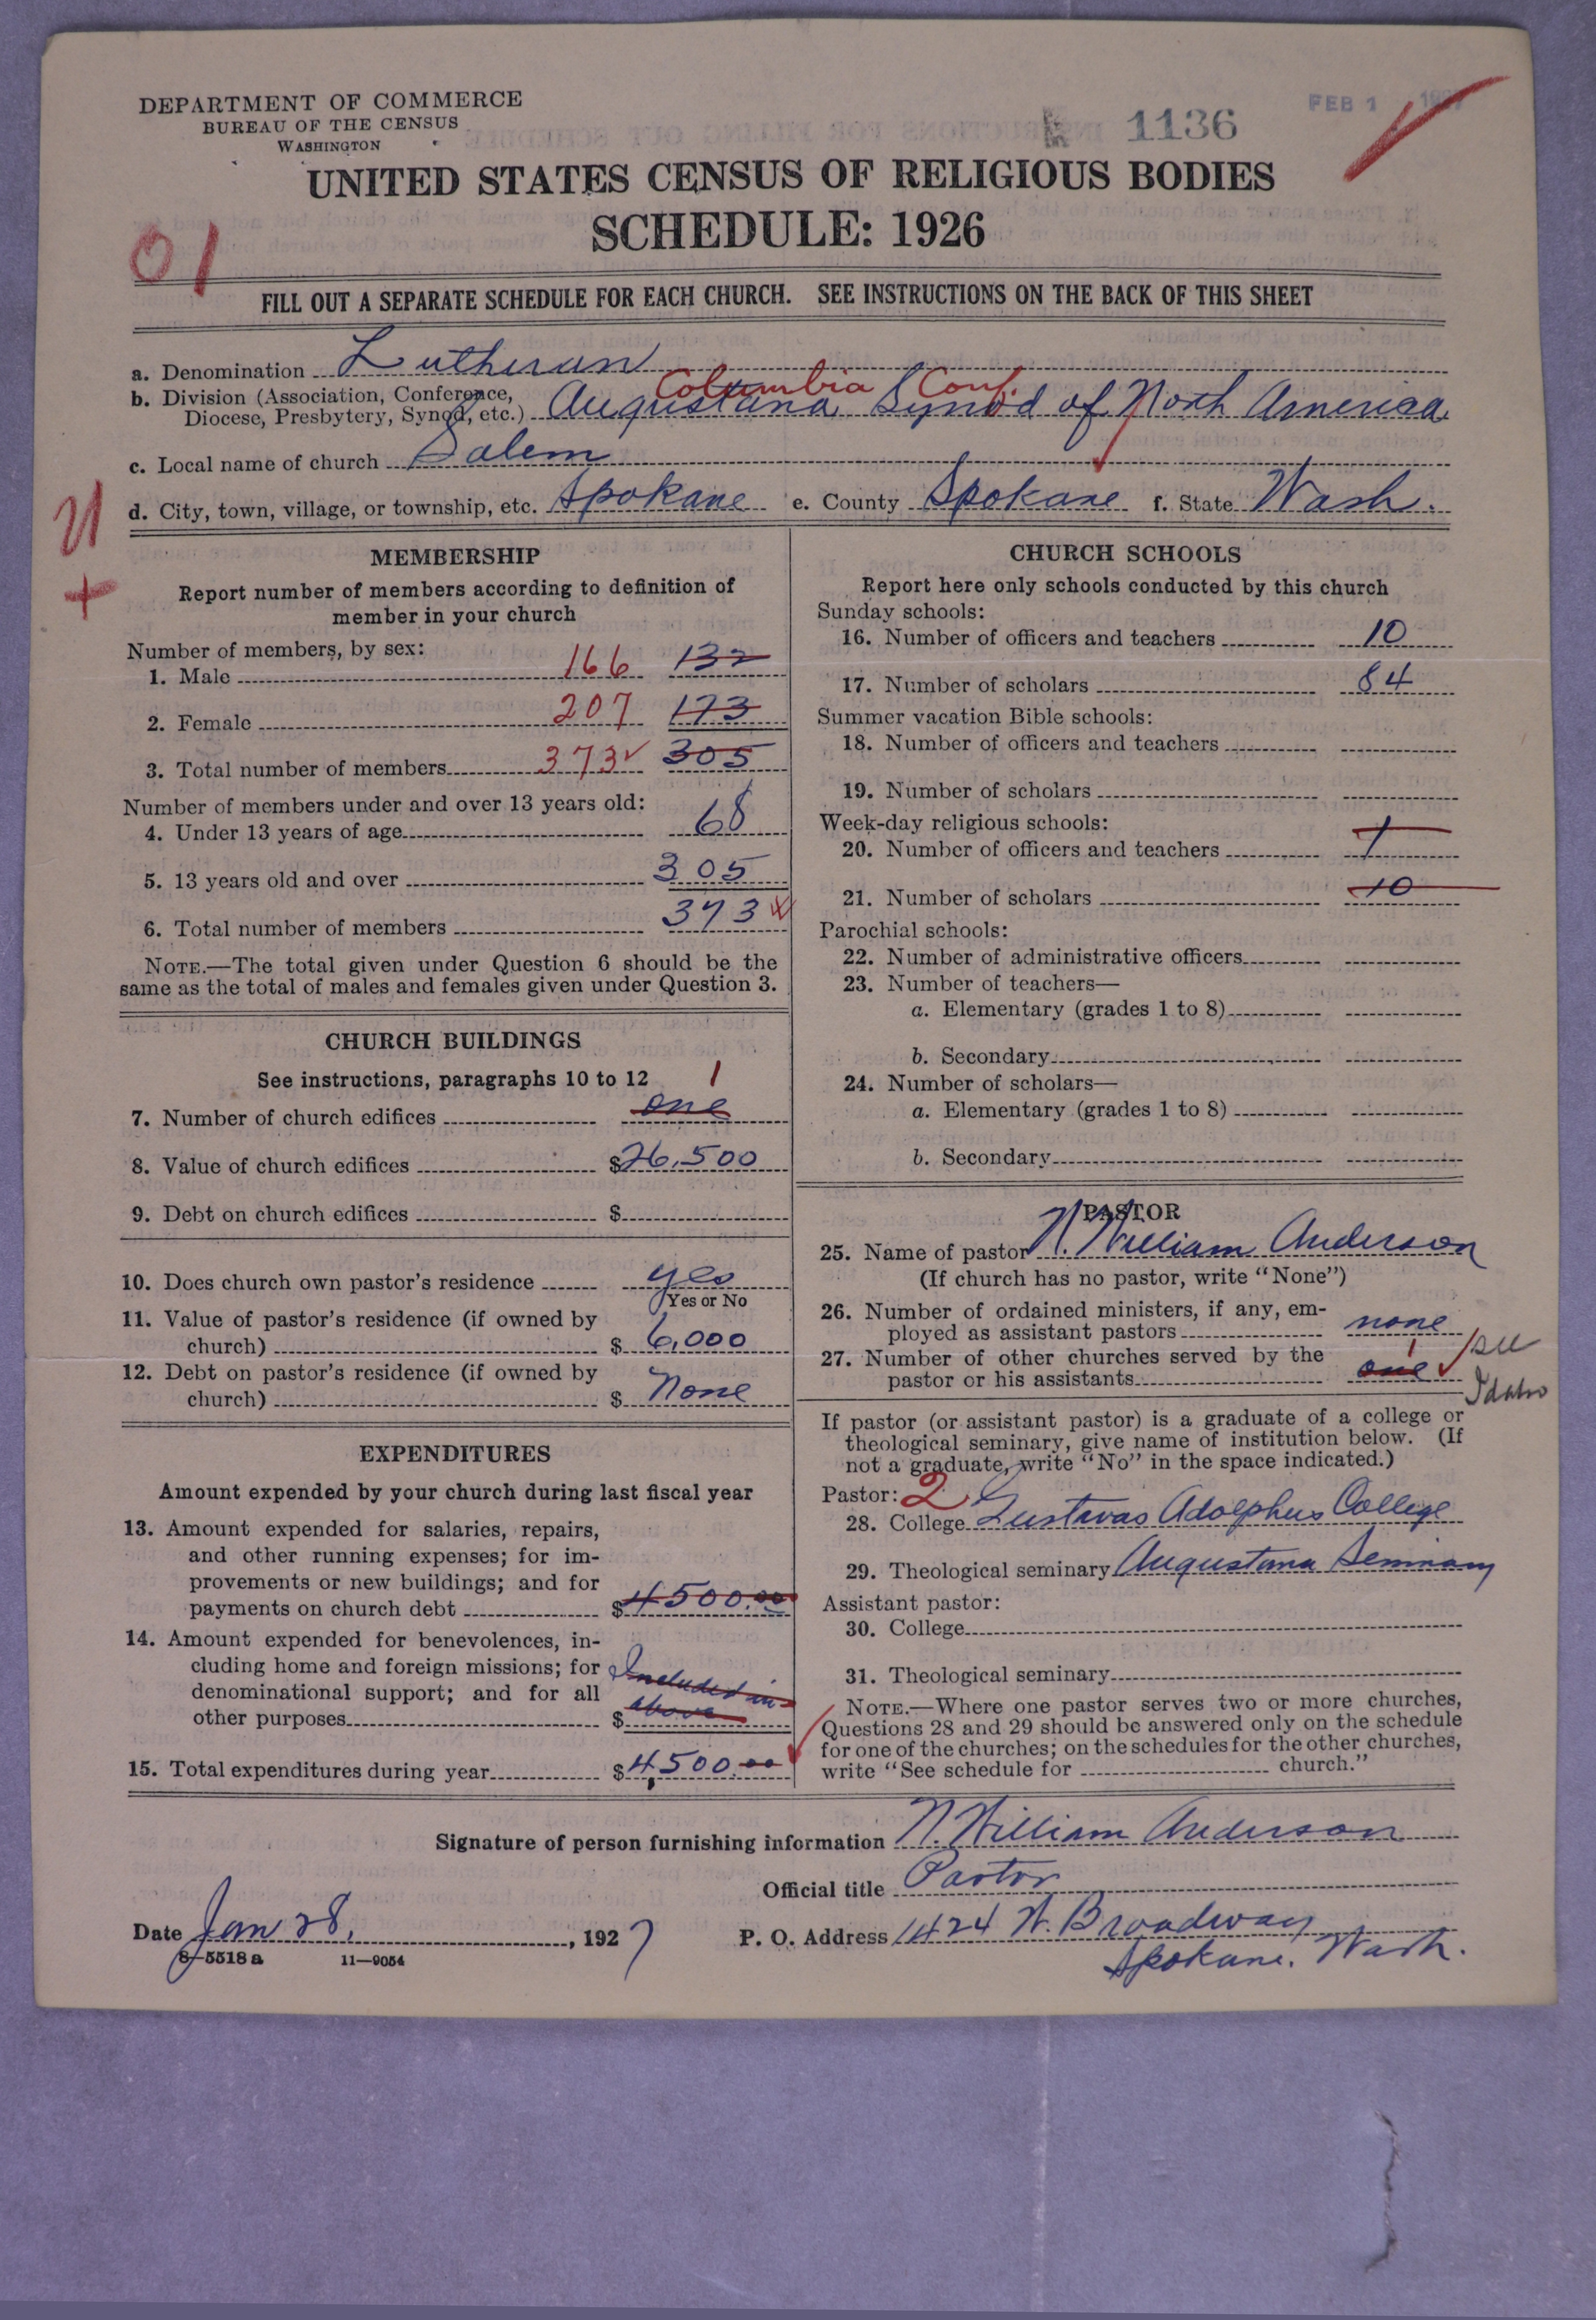 DEPARTMENT OF COMMERCE
BUREAU OF THE CENSUS
WASHINGTON
1136
FEB 1 1927
UNITED STATES CENSUS OF RELIGIOUS BODIES
SCHEDULE: 1926
01
FILL OUT A SEPARATE SCHEDULE FOR EACH CHURCH. SEE INSTRUCTIONS ON THE BACK OF THIS SHEET
a. Denomination Lutheran
Columbia Conf.
b. Division (Association, Conference,
Diocese, Presbytery, Synod, etc.) Augustana Synod of North America
c. Local name of church Salem
d. City, town, village, or township, etc. Spokane e. County Spokane f. State Wash.
MEMBERSHIP
Report number of members according to definition of
member in your church
Number of members, by sex:
1. Male 166 132
2. Female 207 173
3. Total number of members 373 305
Number of members under and over 13 years old:
4. Under 13 years of age 68
5. 13 years old and over 305
6. Total number of members 373
NOTE.—The total given under Question 6 should be the
same as the total of males and females given under Question 3.
CHURCH BUILDINGS
See instructions, paragraphs 10 to 12
1
7. Number of church edifices one
8. Value of church edifices $26,500
9. Debt on church edifices $
10. Does church own pastor's residence yes
Yes or No
11. Value of pastor's residence (if owned by
church) $ 6,000
12. Debt on pastor's residence (if owned by
church) $ None
EXPENDITURES
Amount expended by your church during last fiscal year
13. Amount expended for salaries, repairs,
and other running expenses; for im-
provements or new buildings; and for
payments on church debt $4500.00
14. Amount expended for benevolences, in-
cluding home and foreign missions; for
denominational support; and for all
other purposes $ Included in above
15. Total expenditures during year $4,500.00
CHURCH SCHOOLS
Report here only schools conducted by this church
Sunday schools:
16. Number of officers and teachers 10
17. Number of scholars 84
Summer vacation Bible schools:
18. Number of officers and teachers
19. Number of scholars
Week-day religious schools:
20. Number of officers and teachers 1
21. Number of scholars 10
Parochial schools:
22. Number of administrative officers
23. Number of teachers—
a. Elementary (grades 1 to 8)
b. Secondary
24. Number of scholars—
a. Elementary (grades 1 to 8)
b. Secondary
PASTOR
25. Name of pastor N. William Anderson
(If church has no pastor, write "None")
26. Number of ordained ministers, if any, em-
ployed as assistant pastors none
27. Number of other churches served by the
pastor or his assistants one 1 see Idaho
If pastor (or assistant pastor) is a graduate of a college or
theological seminary, give name of institution below. (If
not a graduate, write "No" in the space indicated.)
Pastor: 2
28. College Gustavus Adolphus College
29. Theological seminary Augustana Seminary
Assistant pastor:
30. College
31. Theological seminary
NOTE.—Where one pastor serves two or more churches,
Questions 28 and 29 should be answered only on the schedule
for one of the churches; on the schedules for the other churches,
write "See schedule for church."
Signature of person furnishing information N. William Anderson
Official title Pastor
Date Jan 28, 1927
P. O. Address 1424 W. Broadway
Spokane, Wash.
8—5518 a 11—9054